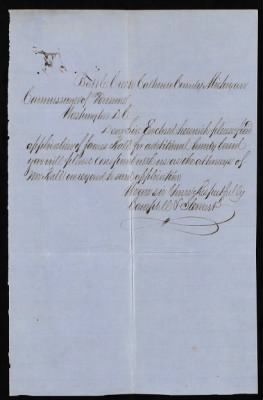 Battle Creek Calhoun County Michigan
Commissioner of Pensions
Washington D.C.
Dear Sir Enclosed herewith please find
application of James Hall for additional bounty land
you will please correspond with us as the attorneys of
Mr Hall in regard to said application
Yours sir Very Respectfully
Campbell & Stewart